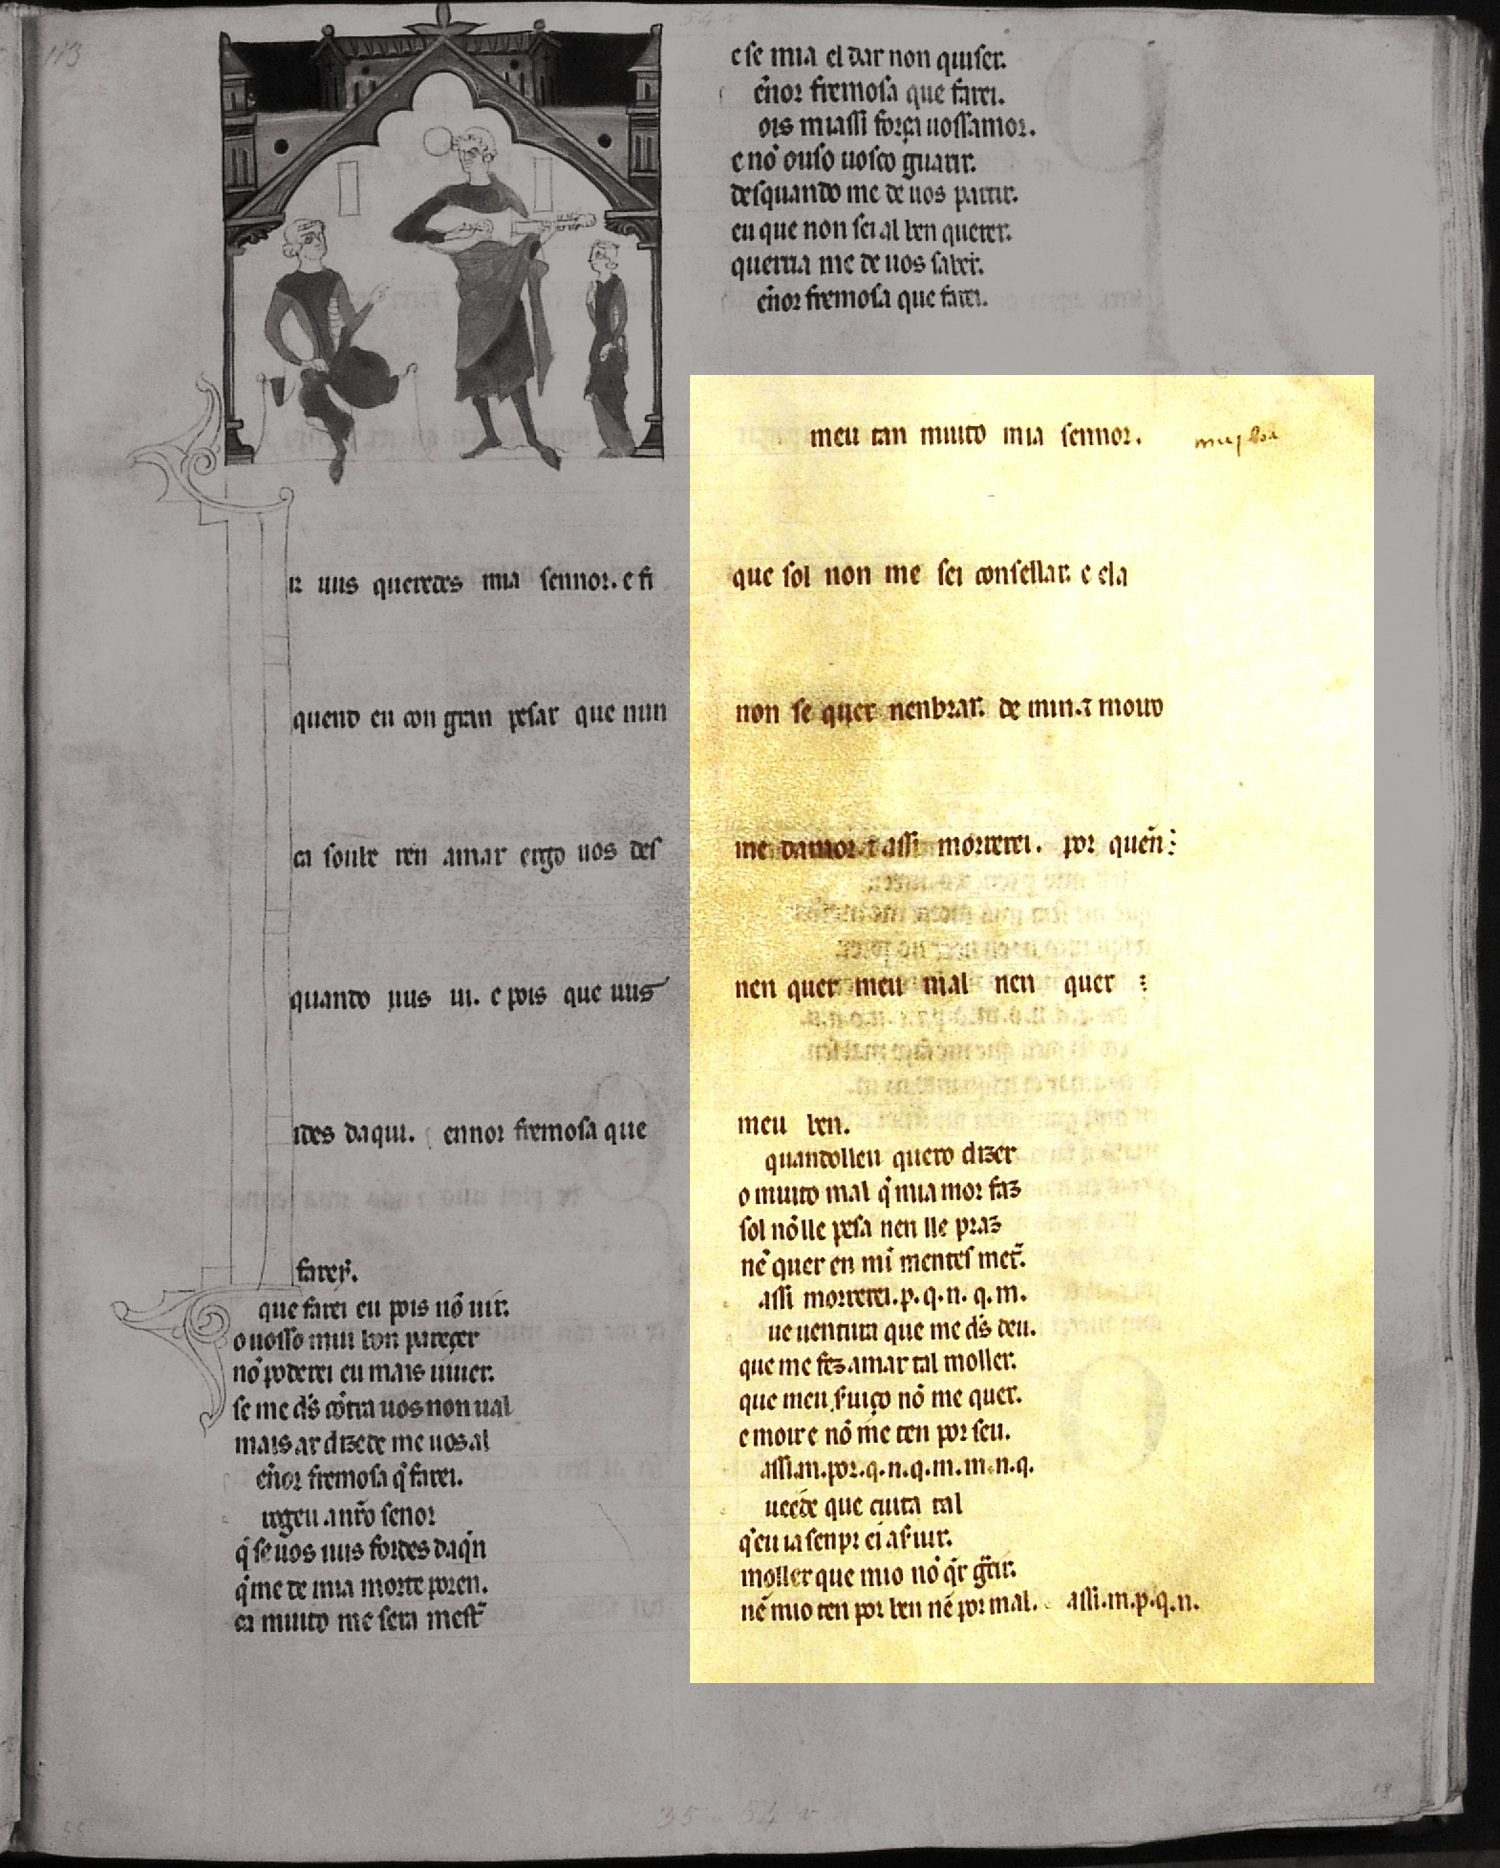 113
ir uus queredes mia sennor. e fi
quend eu con gran pesar que nun
ca soube ren amar ergo uos des
quando uus ui. e pois que uus
ides daqui. ennor fremosa que
farey.
que farei eu pois nõ uir.
o uosso mui bon pareçer
nõ poderei eu mais uiuer.
se me d̃s cõtra uos non ual
mais ar dizede me uos al
eñor fremosa q̃ farei.
rogeu a nr̃o senor
q̃ se uos uus fordes daq̃n
q̃ me de mia morte poren.
ca muito me sera mest̃
e se mia el dar non quiser.
eñor fremosa que farei.
ois massi força uossamor.
e nõ ouso uosco guarir.
desquando me de uos partir.
eu que non sei al ben querer.
querria me de uos saber.
eñor fremosa que farei.
meu tan muito mia sennor.
que sol non me sei consellar. e ela
non se quer nenbrar. de min. ⁊ moiro
me damor. ⁊ assi morrerei. por queñ
nen quer meu mal nen quer
meu ben.
quandolleu quero dizer
o muito mal q̃ miamor faz
sol nõ lle pesa nen lle praz
nẽ quer en mĩ mentes met̃.
assi morrerei. p. q. n. q. m.
ue uentura que me d̃s deu.
que me fez amar tal moller.
que meu s̃uiço nõ me quer.
e moir e nõ me ten por seu.
assi. m. por. q. n. q. m. m. n. q.
ueede que cuita tal
q̃ eu ia senpr ei a s̃uir.
moller que mio nõ q̃r g̃cir.
nẽ mio ten por ben nẽ por mal. assi. m. p. q. n.